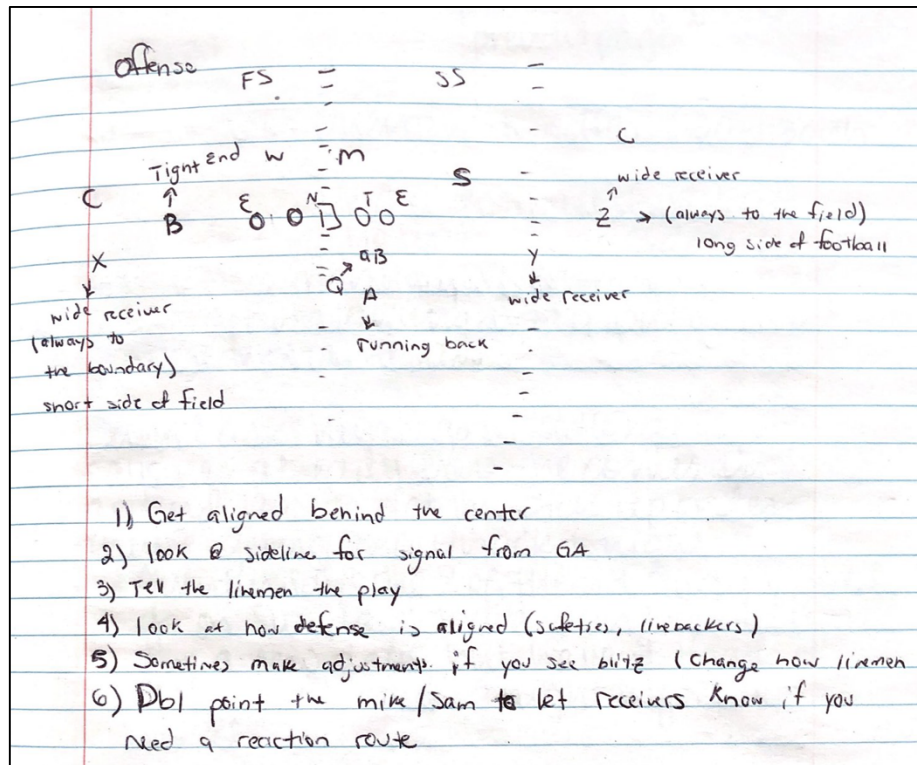 Offense
FS SS
C
Tight End W M
wide receiver
C S
B E N T E Z → (always to the field)
long side of football
X QB Y
Q A
wide receiver wide receiver
(always to running back
the boundary)
short side of field
1) Get aligned behind the center
2) look @ sideline for signal from GA
3) Tell the linemen the play
4) look at how defense is aligned (safeties, linebackers)
5) Sometimes make adjustments if you see blitz (change how linemen
6) Dbl point the mike/Sam to let receivers know if you
need a reaction route